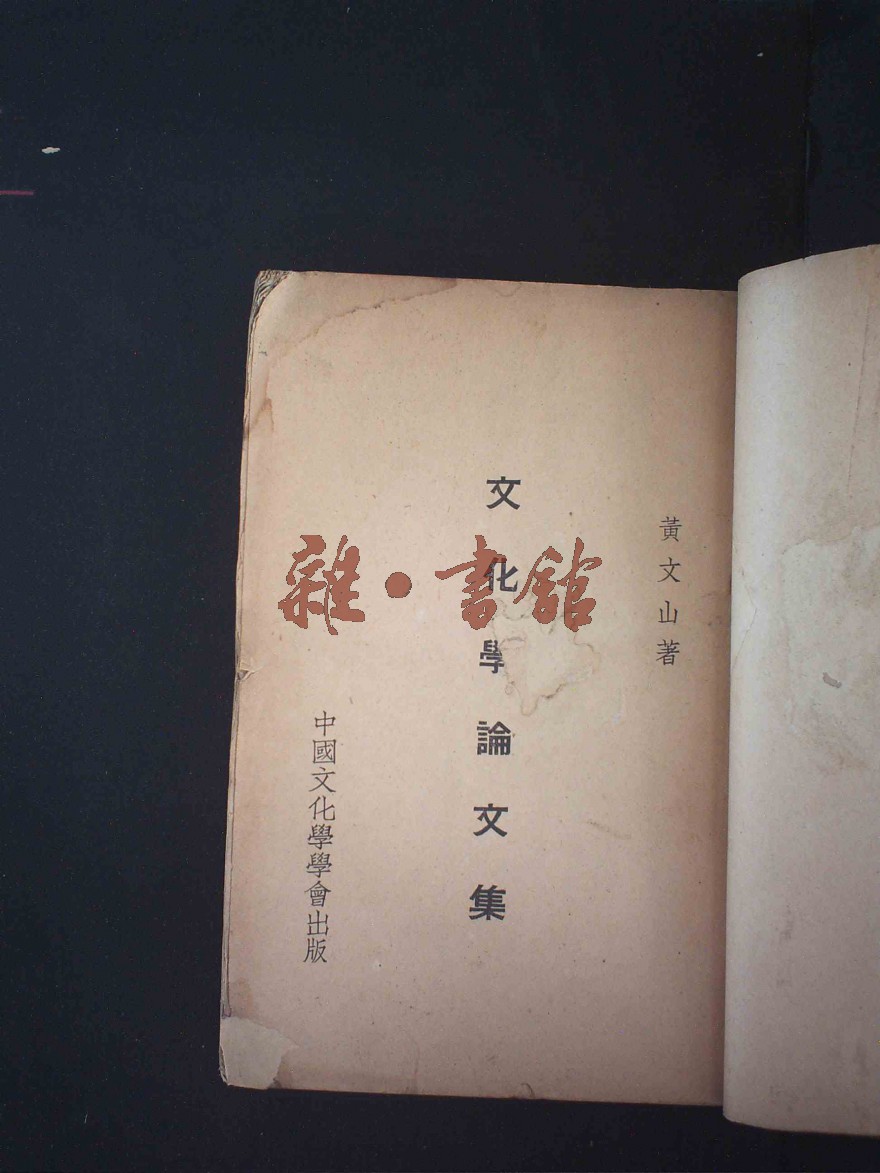 黃文山著
文化學論文集
中國文化學學會出版
雜·書館